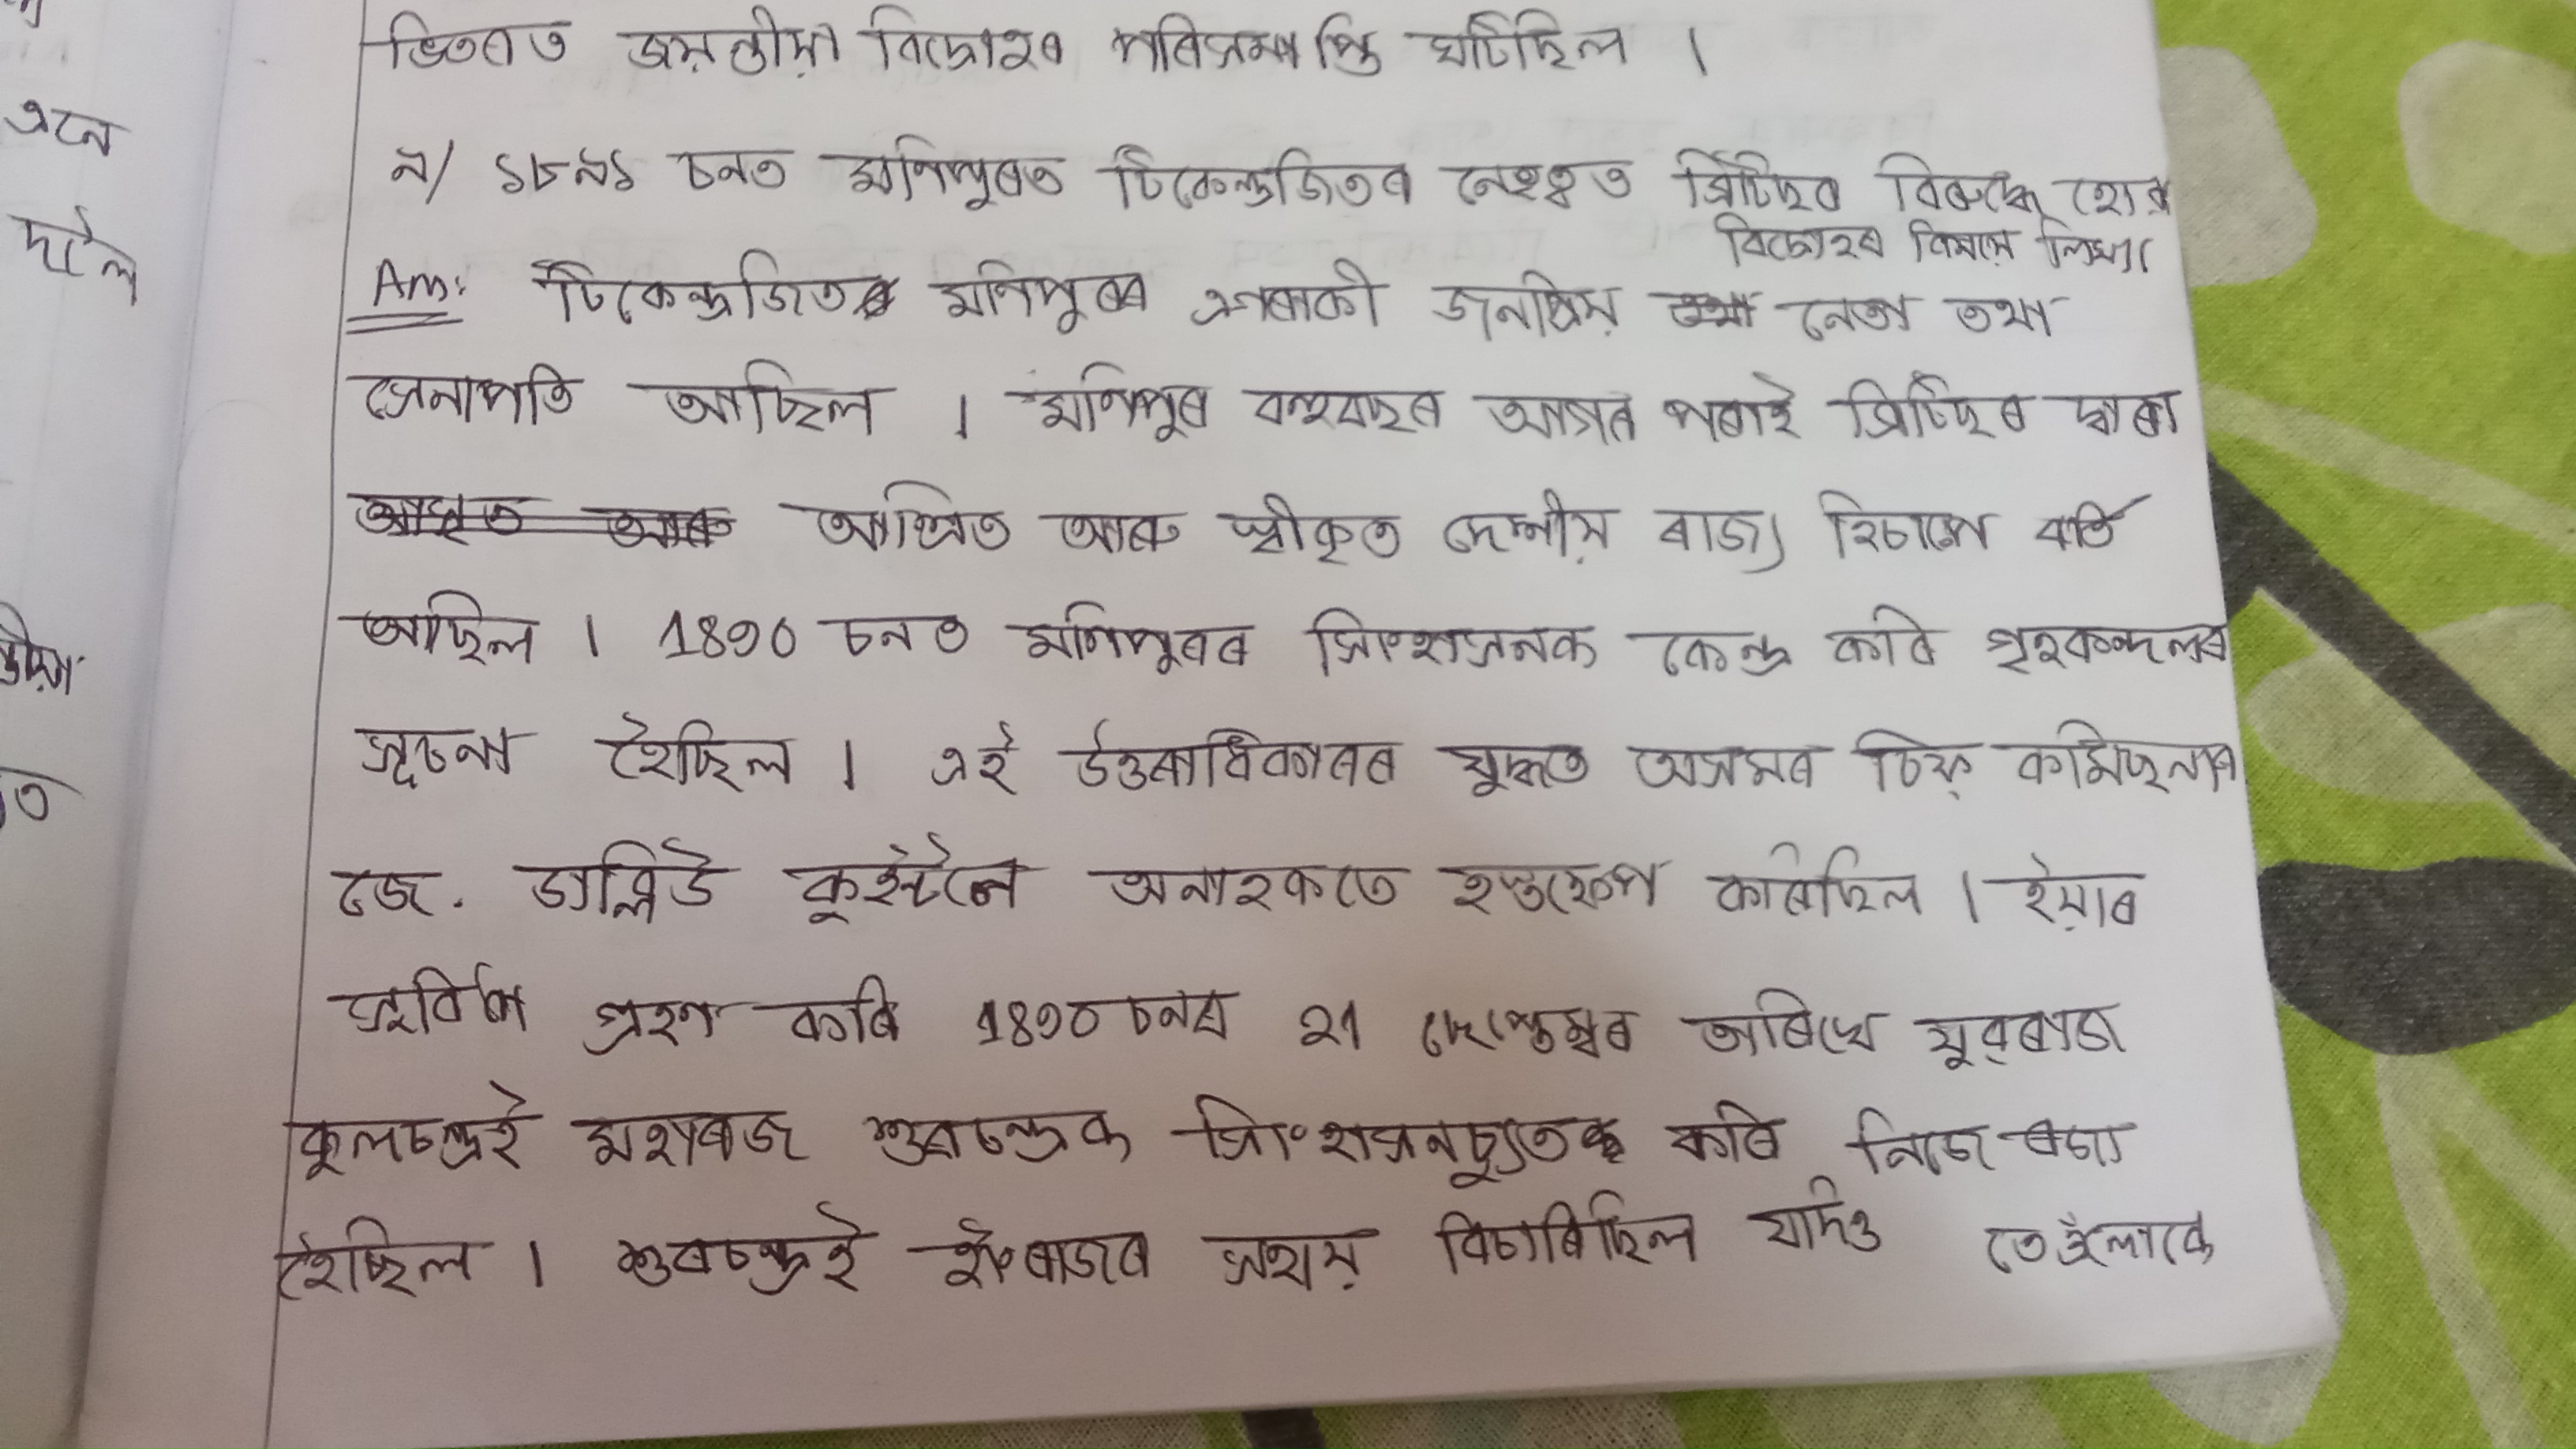 ভিতৰত জয়ন্তীয়া বিদ্ৰোহৰ পৰিসমাপ্তি ঘটিছিল ।
৯/ ১৮৯১ চনত মনিপুৰত টিকেন্দ্ৰজিতৰ নেতৃত্বত ব্ৰিটিছৰ বিৰুদ্ধে হোৱা
বিদ্ৰোহৰ বিষয়ে লিখা।
Ans: টিকেন্দ্ৰজিত মনিপুৰৰ এগৰাকী জনপ্ৰিয় নেতা তথা
সেনাপতি আছিল । মনিপুৰ বহুবছৰ আগৰ পৰাই ব্ৰিটিছৰ দ্বাৰা
আশ্ৰিত আৰু স্বীকৃত দেশীয় ৰাজ্য হিচাপে বৰ্তি
আছিল । 1890 চনত মনিপুৰৰ সিংহাসনক কেন্দ্ৰ কৰি গৃহকন্দলৰ
সূচনা হৈছিল । এই উত্তৰাধিকাৰৰ যুদ্ধত অসমৰ চিফ্ কমিছনাৰ
জে. ডাব্লিউ কুইন্টনে অনাহকতে হস্তক্ষেপ কৰিছিল । ইয়াৰ
সুবিধা গ্ৰহণ কৰি 1890 চনৰ 21 ছেপ্তেম্বৰ তাৰিখে যুৱৰাজ
কুলচন্দ্ৰই মহাৰাজ শুৰচন্দ্ৰক সিংহাসনচ্যুত কৰি নিজে ৰজা
হৈছিল । শুৰচন্দ্ৰই ইংৰাজৰ সহায় বিচাৰিছিল যদিও তেওঁলোকে
এনে
দলৈ
ত